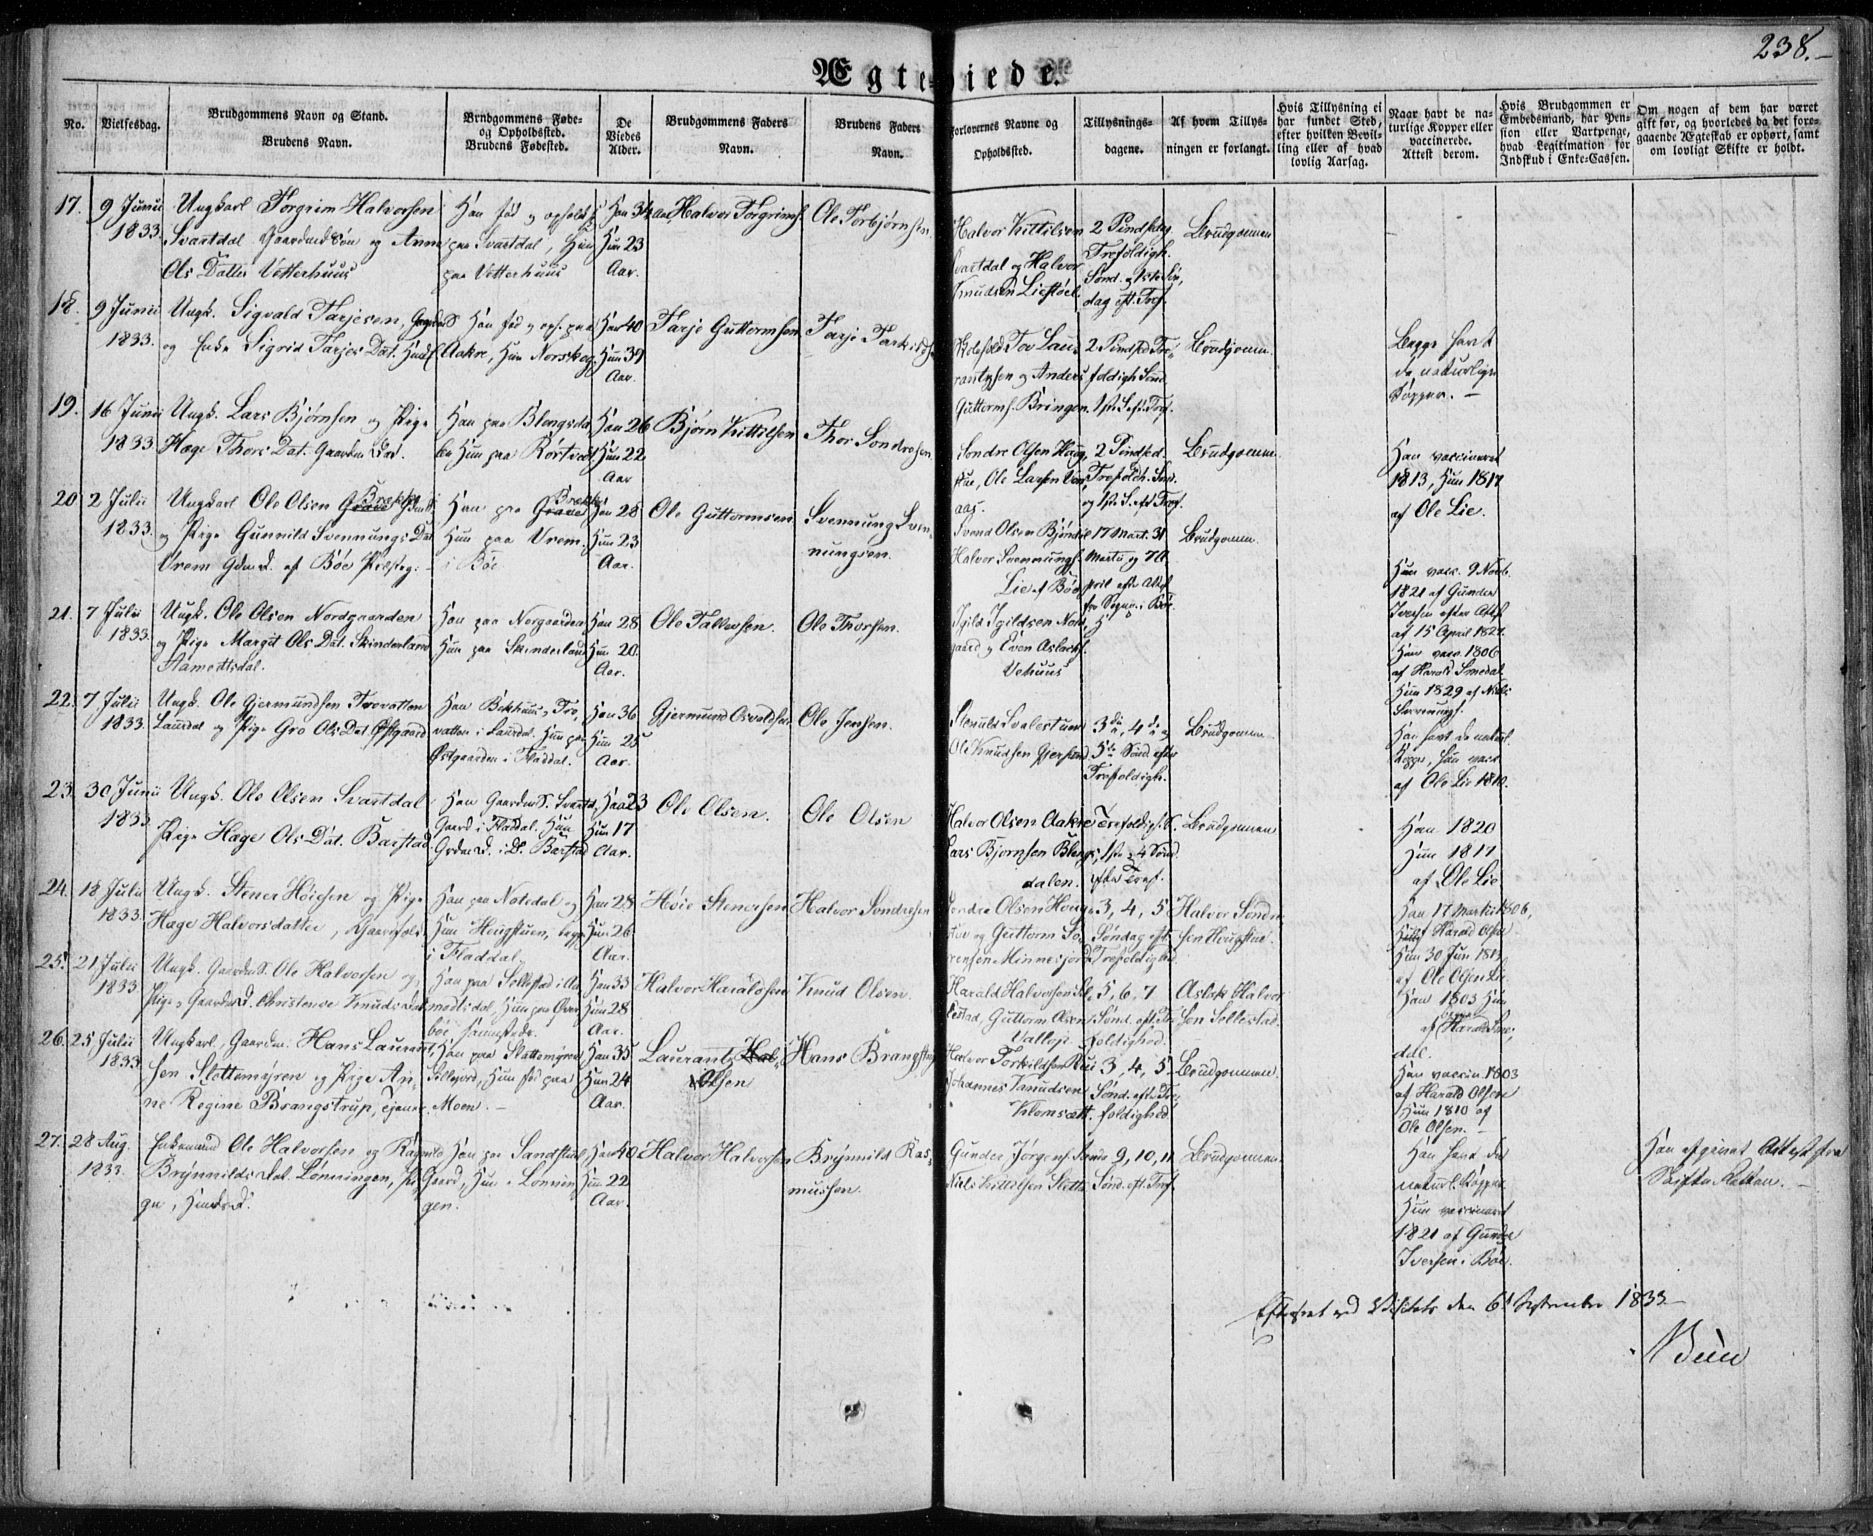 238.
Ægteviede.
No.
Vielsesdag.
Brudgommens Navn og Stand.
Brudens Navn.
Brudgommens Føde-
og Opholdssted.
Brudens Fødested.
De
Viedes
Alder.
Brudgommens Faders
Navn.
Brudens Faders
Navn.
Forlovernes Navne og
Opholdssted.
Tillysnings-
dagene.
Af hvem Tillys-
ningen er forlangt.
Hvis Tillysning ei
har fundet Sted,
efter hvilken Bevil-
ling eller af hvad
lovlig Aarsag.
Naar havt de na-
turlige Kopper eller
vaccinerede.
Attest derom.
Hvis Brudgommen er
Embedsmand, har Pen-
sion eller Vartpenge,
hvad Legitimation for
Indskud i Enke-Cassen.
Om nogen af dem har været
gift før, og hvorledes da det fore-
gaaende Ægteskab er ophørt, samt
om lovligt Skifte er holdt.
17.
9 Junii
1833.
Ungkarl Torgrim Halvorsen
Svartdal Gaardmd Søn og Anne
Ols Datter Vetterhuus
Han fød og opholds
paa Svartdal, Hun
paa Vetterhuus
Han 34 aar
Hun 23
Aar.
Halvor Torgrims.
Ole Torbjørnsen.
Halvor Kittilsen
Svartdal og Halvor
Knudsen Liestøel
2 Pindsedag
Trefoldigh.
Sønd. og 1ste Søn
dag eft. Tref.
Brudgommen
18.
9 Junii
1833.
Ungk. Sigvald Tarjesen,
og Enke Sigrid Tarjes Dat.
Han fød og oph. paa
Aakre, Hun Norskog
Han 40
Hun 39
Aar.
Tarje Guttormsen
Tarje Tarkildsen
Tov Lau-
rantzsen og Anders
Guttorms. Bringen
2 Pindsed. Tre-
foldigh. Sønd.
1ste S. eft. Tref.
Brudgomm.
Begge havt
de naturlige
Kopper. -
19.
16 Junii
1833.
Ungk. Lars Bjørnsen og Pige
Hage Thors Dat. Gaardm. Dat.
Han paa Blengsda
len Hun paa Kortvedt
Han 26
Hun 22
Aar
Bjørn Kittilsen
Thor Sondresen
Sondre Olsen Haug
stue, Ole Larsen
aas.
2 Pindsed.
Trefoldh. Sønd.
og 1ste S. eft. Tref.
Brudgomm.
Han vaccineret
1813, Hun 1817
af Ole Lie.
20
2 Julii
1833.
Ungkarl Ole Olsen Grave Brekke
og Pige Gunnild Svennungs Dat
Vrem Gdm D. af Bøe Præsteg.
Han paa Grave Brekke
Hun paa Vrem
i Bøe
Han 28
Hun 23
Aar.
Ole Guttormsen
Svennung Sven-
nungsen.
Svend Olsen Bjøndal
Halvor Svennungs.
Lie af Bøe
17 Mart. 31
Marts og 7 A-
pril efter Attest
fra Sogn. i Bøe.
Brudgomm.
Hun vacc. 9 Novb.
1821 af Gunder
Iversen efter Attest
af 15 April 1827.
21.
7 Julii
1833.
Ungk. Ole Olsen Nordgaarden
og Pige Margit Ols Dat. Skinderland
Aamodtsdal.
Han paa Norgaarden
Hun paa Skinderland
Han 28
Hun 20.
Aar.
Ole Tallevsen.
Ole Thorsen.
Igild Igildsen Nord
gaard og Even Aslachs.
Vehuus
Han vacc. 1806
af Harald Smedal
Hun 1829 af Niels
Svennungs.
22.
7 Julii
1833.
Ungk. Ole Gjermundsen Trovatten
Laurdal og Pige Gro Ols Dat. Østgaard
Han Bekhuus, Tro
vatten i Laurdal. Hun paa
Østgaarden i Fladdal.
Han 36
Hun 25
Aar.
Gjermund Osvaldsen
Ole Jensen.
Svalestuen
Ole Knudsen Gjersund
3die, 4de og
5te Sønd. efter
Trefoldigh.
Brudgomm.
Han havt de naturl.
Kopper, Hun vacc.
af Ole Lie 1810.
23.
30 Junii
1833.
Ungk. Ole Olsen Svartdal
Pige Hage Ols Dat. Barstad
Han Gaardm S. Svartd.
Gaard i Fladdal. Hun
Grdm D. i D. Barstad
Han 23
Hun 17
Aar.
Ole Olsen.
Ole Olsen
Halvor Olsen Aakre
Lars Bjørnsen Blengs-
dalen.
Trefoldigh. S.
1ste og 4 Sønd.
efter Tref.
Brudgommen
Han 1820
Hun 1817
af Ole Lie
24.
18 Julii
1833.
Ungk. Stener Høiesen og Pige
Hage Halvorsdatter, Gaardfolk
Han paa Notedal og
Hun Haugstuen, begge
i Fladdal.
Han 28
Hun 26
Aar.
Høie Stenersen
Halvor Sondresen
Sondre Olsen Houg-
stue og Guttorm Sø-
rensen Minnesjord
3, 4, 5
Søndag eft.
Trefoldighed
Halvor Sondre
sen Hougstue.
Han 17 Martii 1806,
af Harald Olsen
Hun 30 Jun 1819
af Ole Olsen Lie
25.
21 Julii
1833.
Ungk. Gaardm S. Ole Halvorsen og
Pige Gaardm D. Christense Knuds Dat
Han paa Sellestad i Aa
modtsdal, Hun paa Over
bøe sammesteds.
Han 33
Hun 28
Aar.
Halvor Haraldsen
Knud Olsen.
Harald Halvorsen Sel-
lestad, Guttorm Olsen
Valleje.
5, 6, 7
Sønd. eft. Tre
foldighed.
Aslak Halvor
sen Sellestad.
Han 1803 Hun
af Harald Sme-
dal.
26.
25 Julii
1833.
Ungkarl, Gaardm. Hans Laurant-
sen Slettemyren og Pige An-
ne Regine Brangstrup, tjener
Han paa Slettemyren
Sillejord, Hun fød paa
Moen. -
Han 35
Hun 24
Aar.
Laurants Hal-
Olsen
Hans Brangstrup
Halvor Torkildsen Rui
Johannes Knudsen
Klomsætt.
3, 4, 5
Sønd. eft. Tre-
foldighed.
Brudgommen.
Han vaccin. 1803
af Harald Olsen
Hun 1810 af
Ole Olsen. -
27.
28 Aug.
1833.
Enkemand Ole Halvorsen og Ragnild
Brynnilds Dat. Lønningen, Pi-
ge, Husm. D.
Han paa Sandstul
Gaard, Hun i Lønnin
gen.
Han 40
Hun 22
Aar.
Halvor Halvorsen
Brynnild Ras-
mussen.
Gunder Jørgens.
Niels Kittilsen Slette
9, 10, 11
Sønd. eft. Tref.
Brudgommen
Han havt de
naturl. Kopper
Hun vaccineret
1821 af Gunder
Iversen i Bøe.
Han afgivet Attest fra
Skifte Retten. -
Efterseet ved Visitats den 6te September 1833